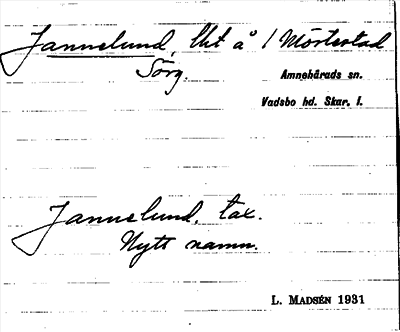 Jannelund, lht å 1 Mörtestad
Sörg.
Amnehärads sn.
Vadsbo hd. Skar. l.
Jannelund, tax.
Nytt namn.
L. MADSÉN 1931